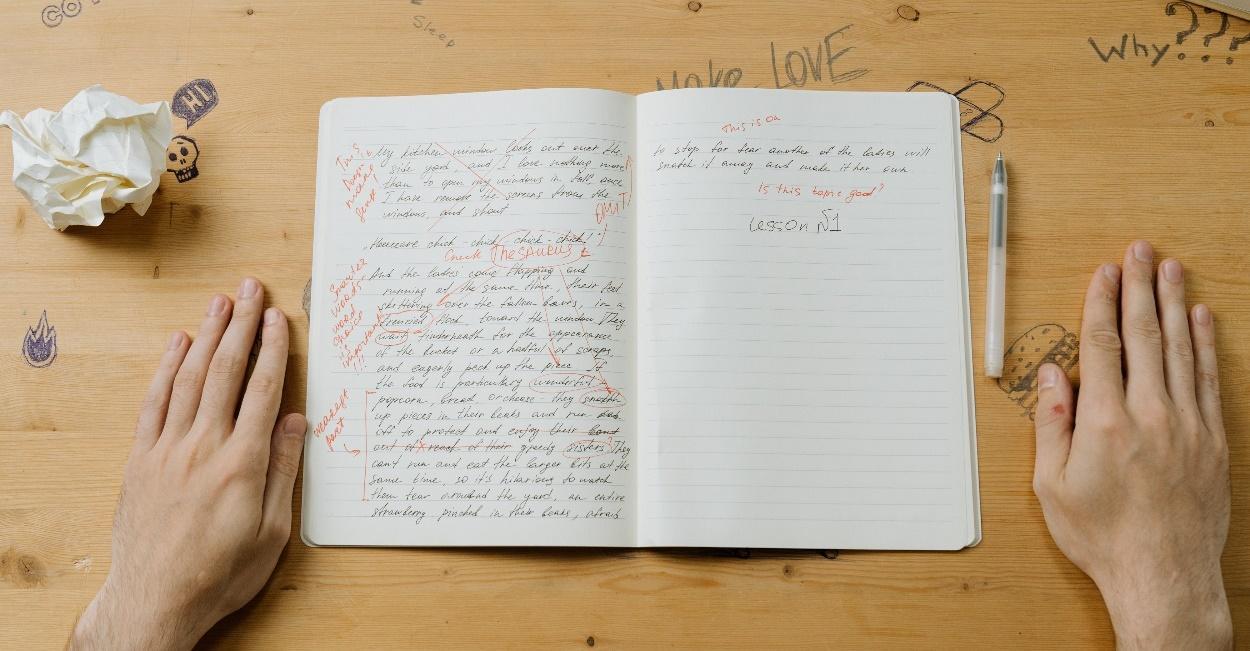 Sleep
Make LOVE
Why???
HI
This is
My kitchen window looks out over the
side yard, and I love nothing more
than to open my windows in fall, once
I have remove the screens from the
windows, and shout
OMIT
chick-chick, chick-chick!
Check Thesaurus
And the ladies come flapping and
running at the same time, their feet
skittering over the fallen leaves, in a
frenzied flock toward the window. They
wait underneath for the appearance
of the bucket or a handful of scraps
and eagerly peck up the piece. If
the food is particulary wonderful
popcorn, bread, or cheese - they
up pieces in their beaks and run
off to protect and enjoy their
out of reach of their greedy sisters? They
can't run and eat the larger bits at the
same time, so it's hilarious to watch
them tear around the yard, an entire
strawberry pinched in their beaks, afraid
words-
word
choice
is
important
!!!
weakest
part
This is on
to stop for fear another of the ladies will
snatch it away and make it her own.
Is this topic good?
Lesson №1